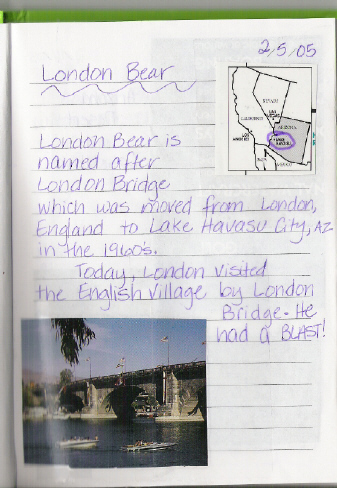 2/5/05
London Bear
NEVADA
ARIZONA
London Bear is
named after
London Bridge
which was moved from London,
England to Lake Havasu City, AZ
in the 1960s.
Today, London visited
the English Village by London
Bridge. He
had a BLAST!